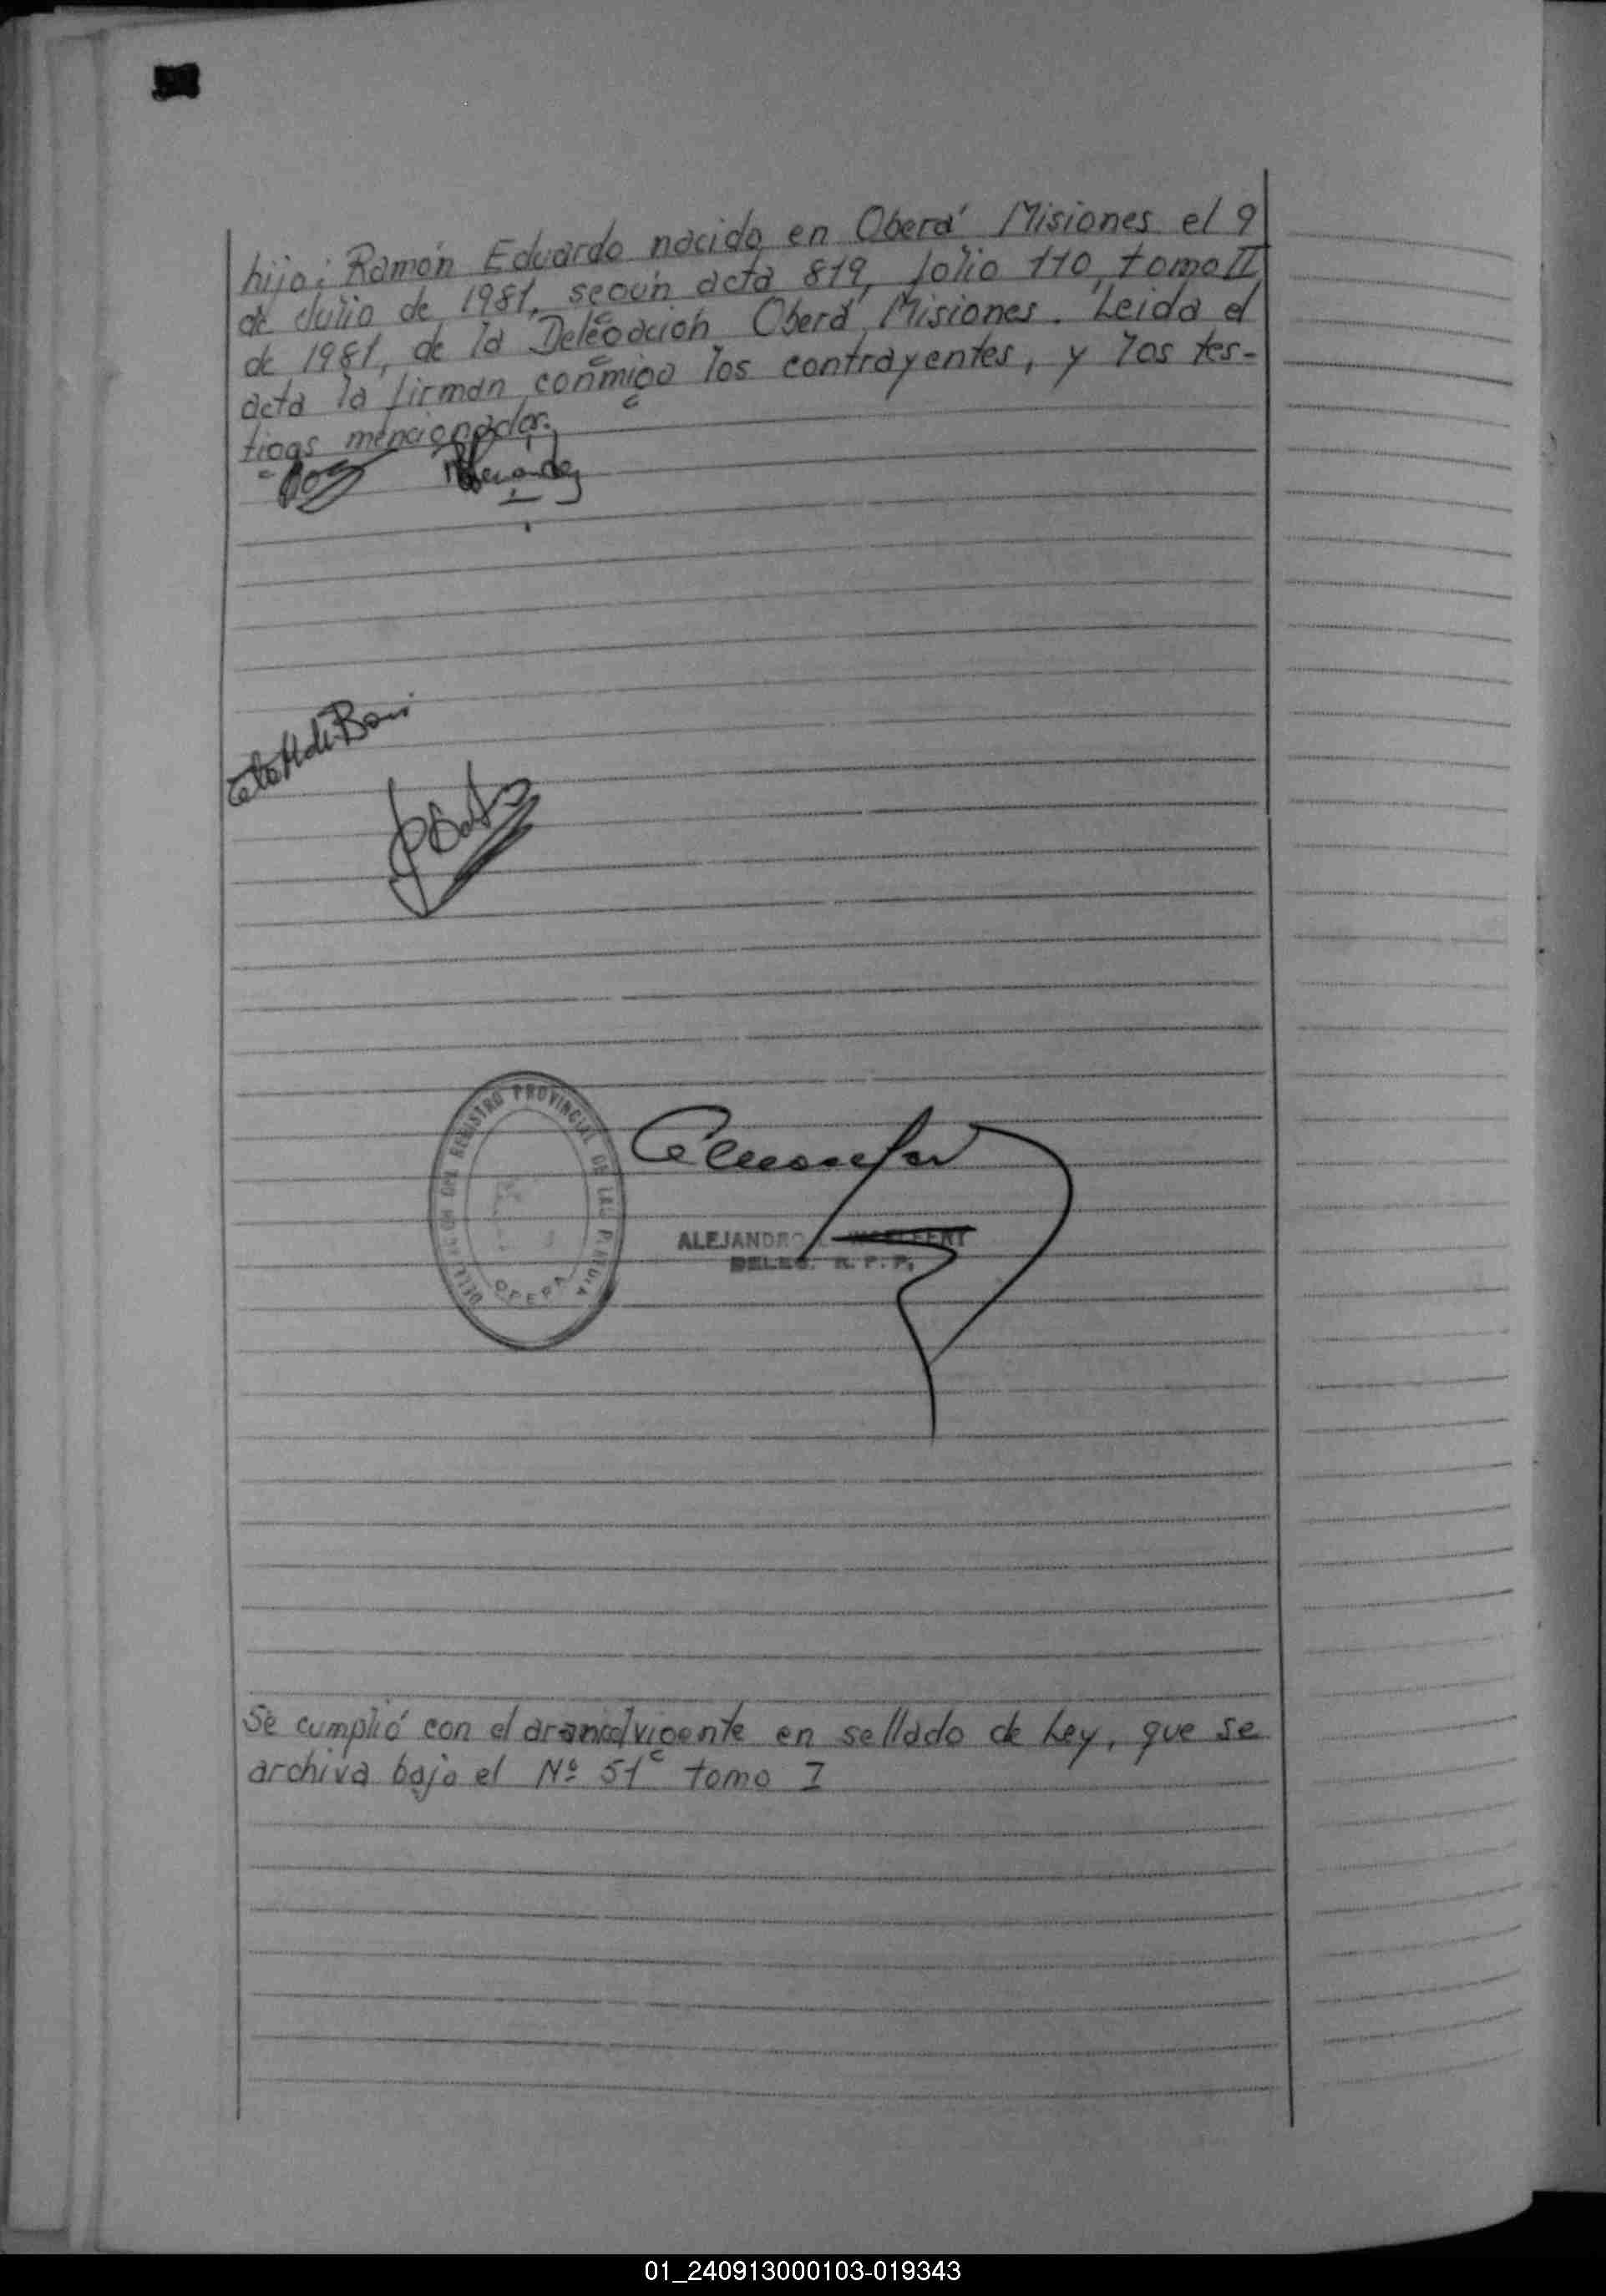 hijo: Ramón Eduardo nacido en Oberá Misiones el 9
de Julio de 1981, según acta 819, folio 110, tomo II
de 1981, de la Delegación Oberá Misiones. Leida el
acta la firman conmigo los contrayentes, y los tes-
tigos mencionados.
REGISTRO PROVINCIAL DE LAS
ALEJANDRO
DELEG. R. P. P.
Se cumplió con el arancel vigente en sellado de Ley, que se
archiva bajo el Nº 51 tomo I
01_240913000103-019343